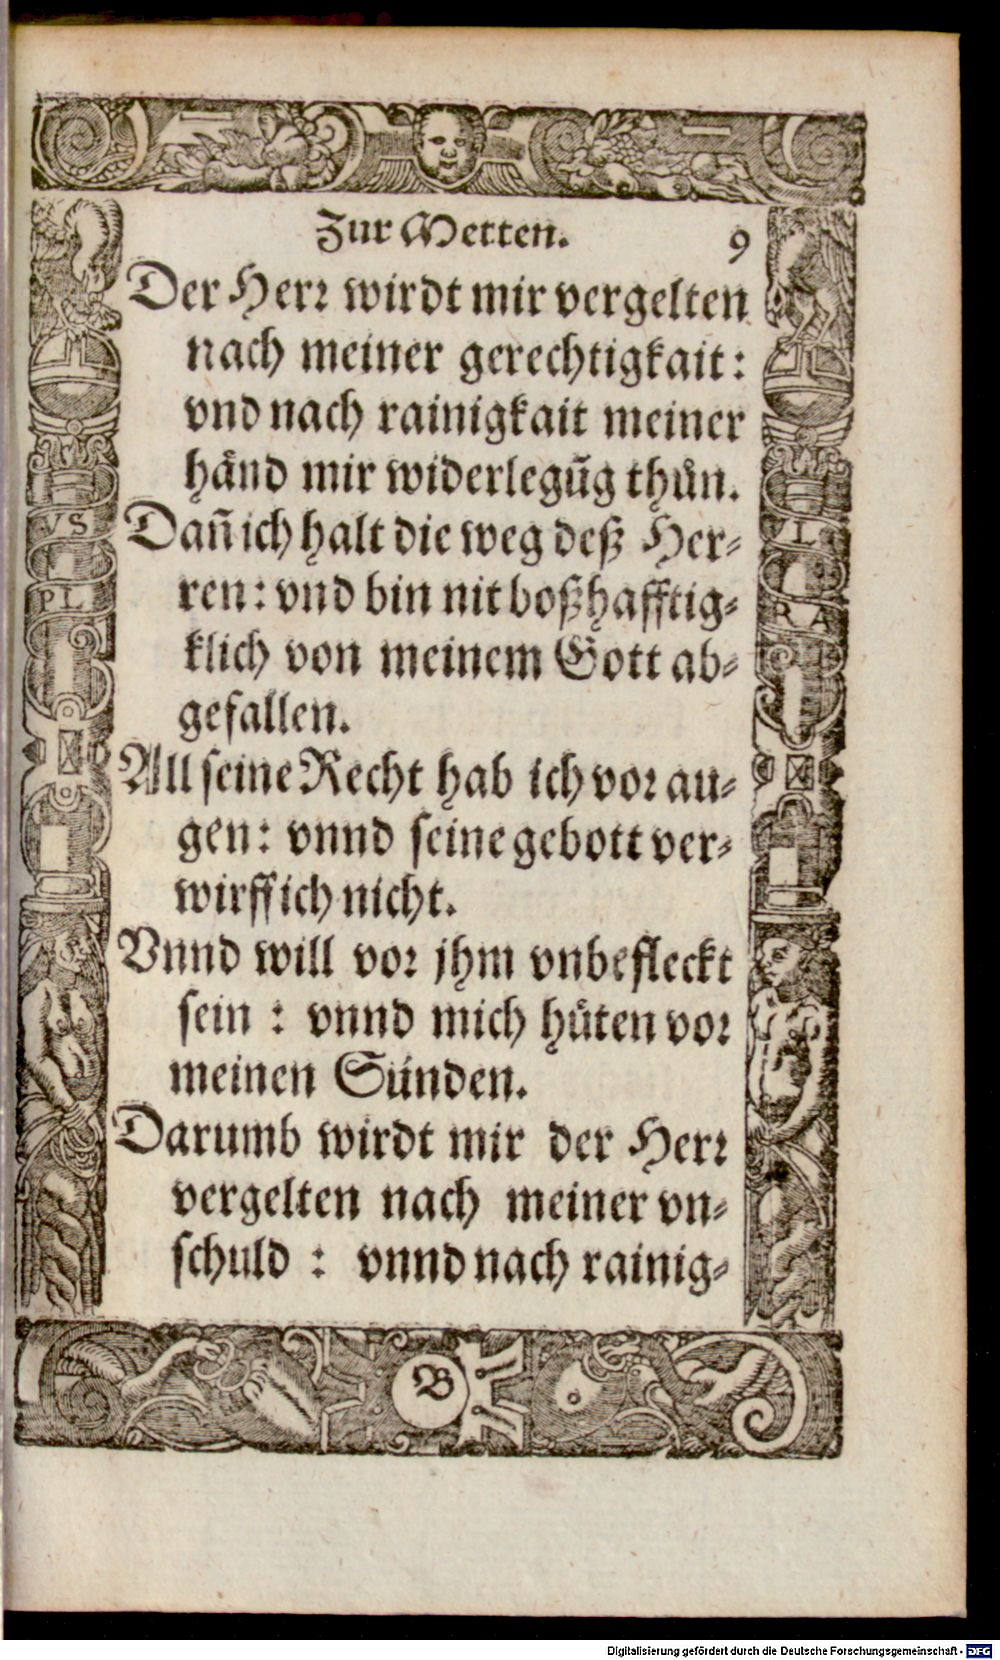 Zur Metten. 9
Der Herꝛ wirdt mir vergelten
nach meiner gerechtigkait:
vnd nach rainigkait meiner
händ mir widerlegūg thůn.
Dañ ich halt die weg deß Her⸗
ren: vnd bin nit boßhafftig⸗
klich von meinem Gott ab⸗
gefallen.
All seine Recht hab ich voꝛ au⸗
gen: vnnd seine gebott ver⸗
wirff ich nicht.
Vnnd will voꝛ jhm vnbefleckt
sein : vnnd mich hüten voꝛ
meinen Sünden.
Darumb wirdt mir der Herꝛ
vergelten nach meiner vn⸗
schuld : vnnd nach rainig⸗
VS
PL
VL
RA
B
Digitalisierung gefördert durch die Deutsche Forschungsgemeinschaft - DFG